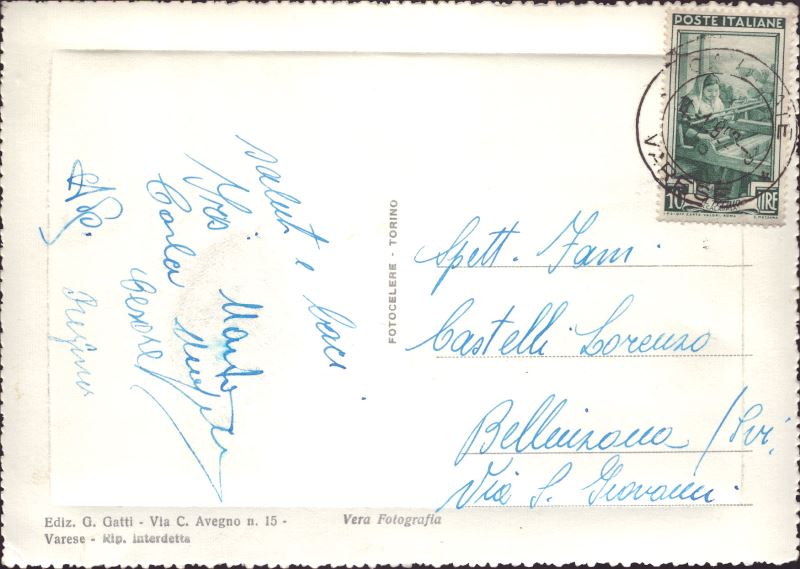 POSTE ITALIANE
10 LIRE
VARESE
saluti e baci
Carla
Cesare
FOTOCELERE - TORINO
Spett. Fam.
Castelli Lorenzo
Bellinzona / Svi.
Via S. Giovanni.
Ediz. G. Gatti - Via C. Avegno n. 15 -
Varese - Rip. interdetta
Vera Fotografia